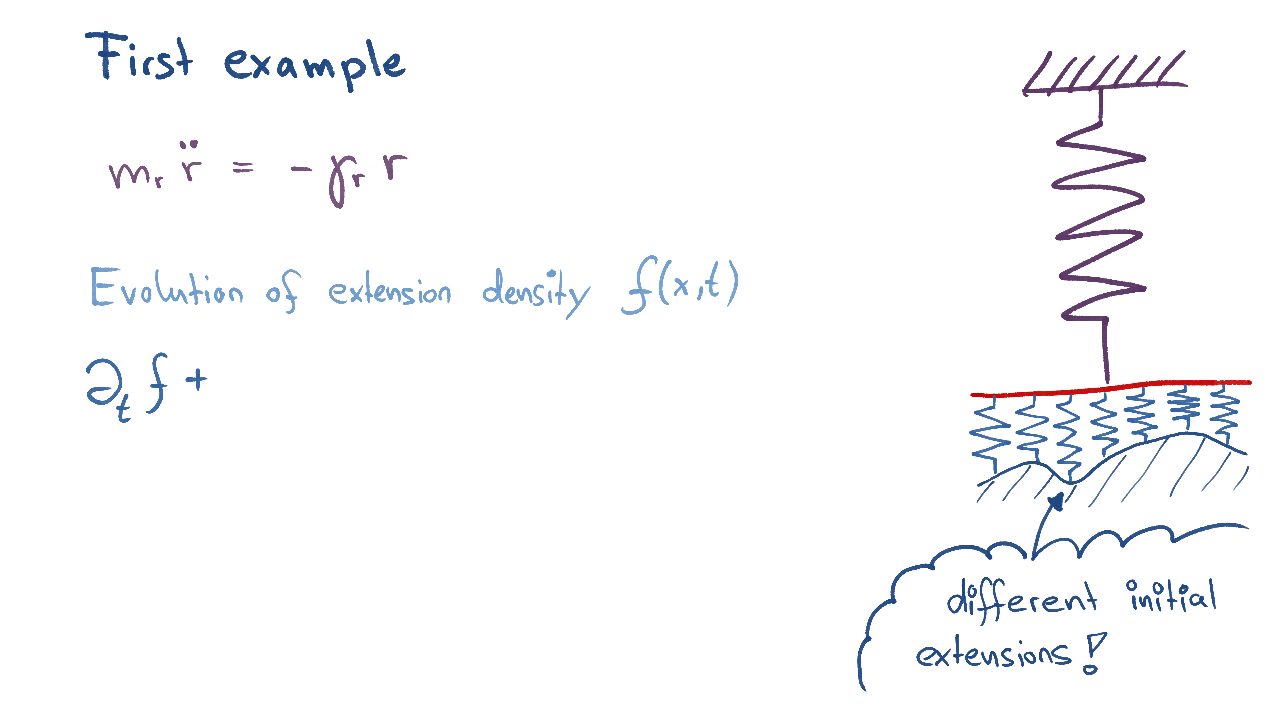 First example
mᵣ r̈ = - γᵣ r
Evolution of extension density f(x,t)
∂ₜ f +
different initial
extensions!